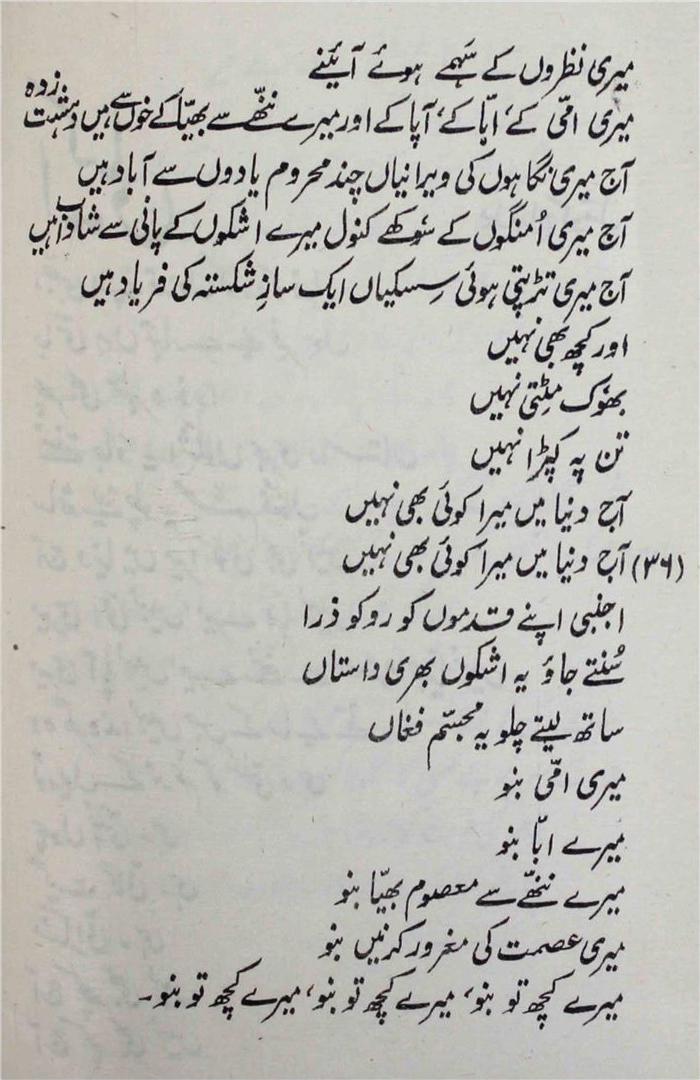 میری نظروں کے سَہمے ہوئے آیئنے
میری امّی کے، ابّا کے، آپا کے اور میرے ننھّے سے بھیّا کے خوں سے ہیں دہشت زدہ
آج میری نگاہوں کی ویرانیاں چند محروم یادوں سے آباد ہیں
آج میری اُمنگوں کے سُوکھے کنول میرے اشکوں کے پانی سے شاداب ہیں
آج میری تڑپتی ہوئی سِسکیاں ایک سازِ شکستہ کی فریاد ہیں
اور کچھ بھی نہیں
بھُوک مِٹتی نہیں
تن پہ کپڑا نہیں
آج دنیا میں میرا کوئی بھی نہیں
(۳۶) آج دنیا میں میرا کوئی بھی نہیں
اجنبی اپنے قدموں کو روکو ذرا
سُنتے جاؤ یہ اشکوں بھری داستاں
ساتھ لیتے چلو یہ مجسّم فغاں
میری امّی بنو
میرے ابّا بنو
میرے ننھّے سے معصوم بھیّا بنو
میری عصمت کی مغرور کرنیں بنو
میرے کچھ تو بنو، میرے کچھ تو بنو، میرے کچھ تو بنو۔